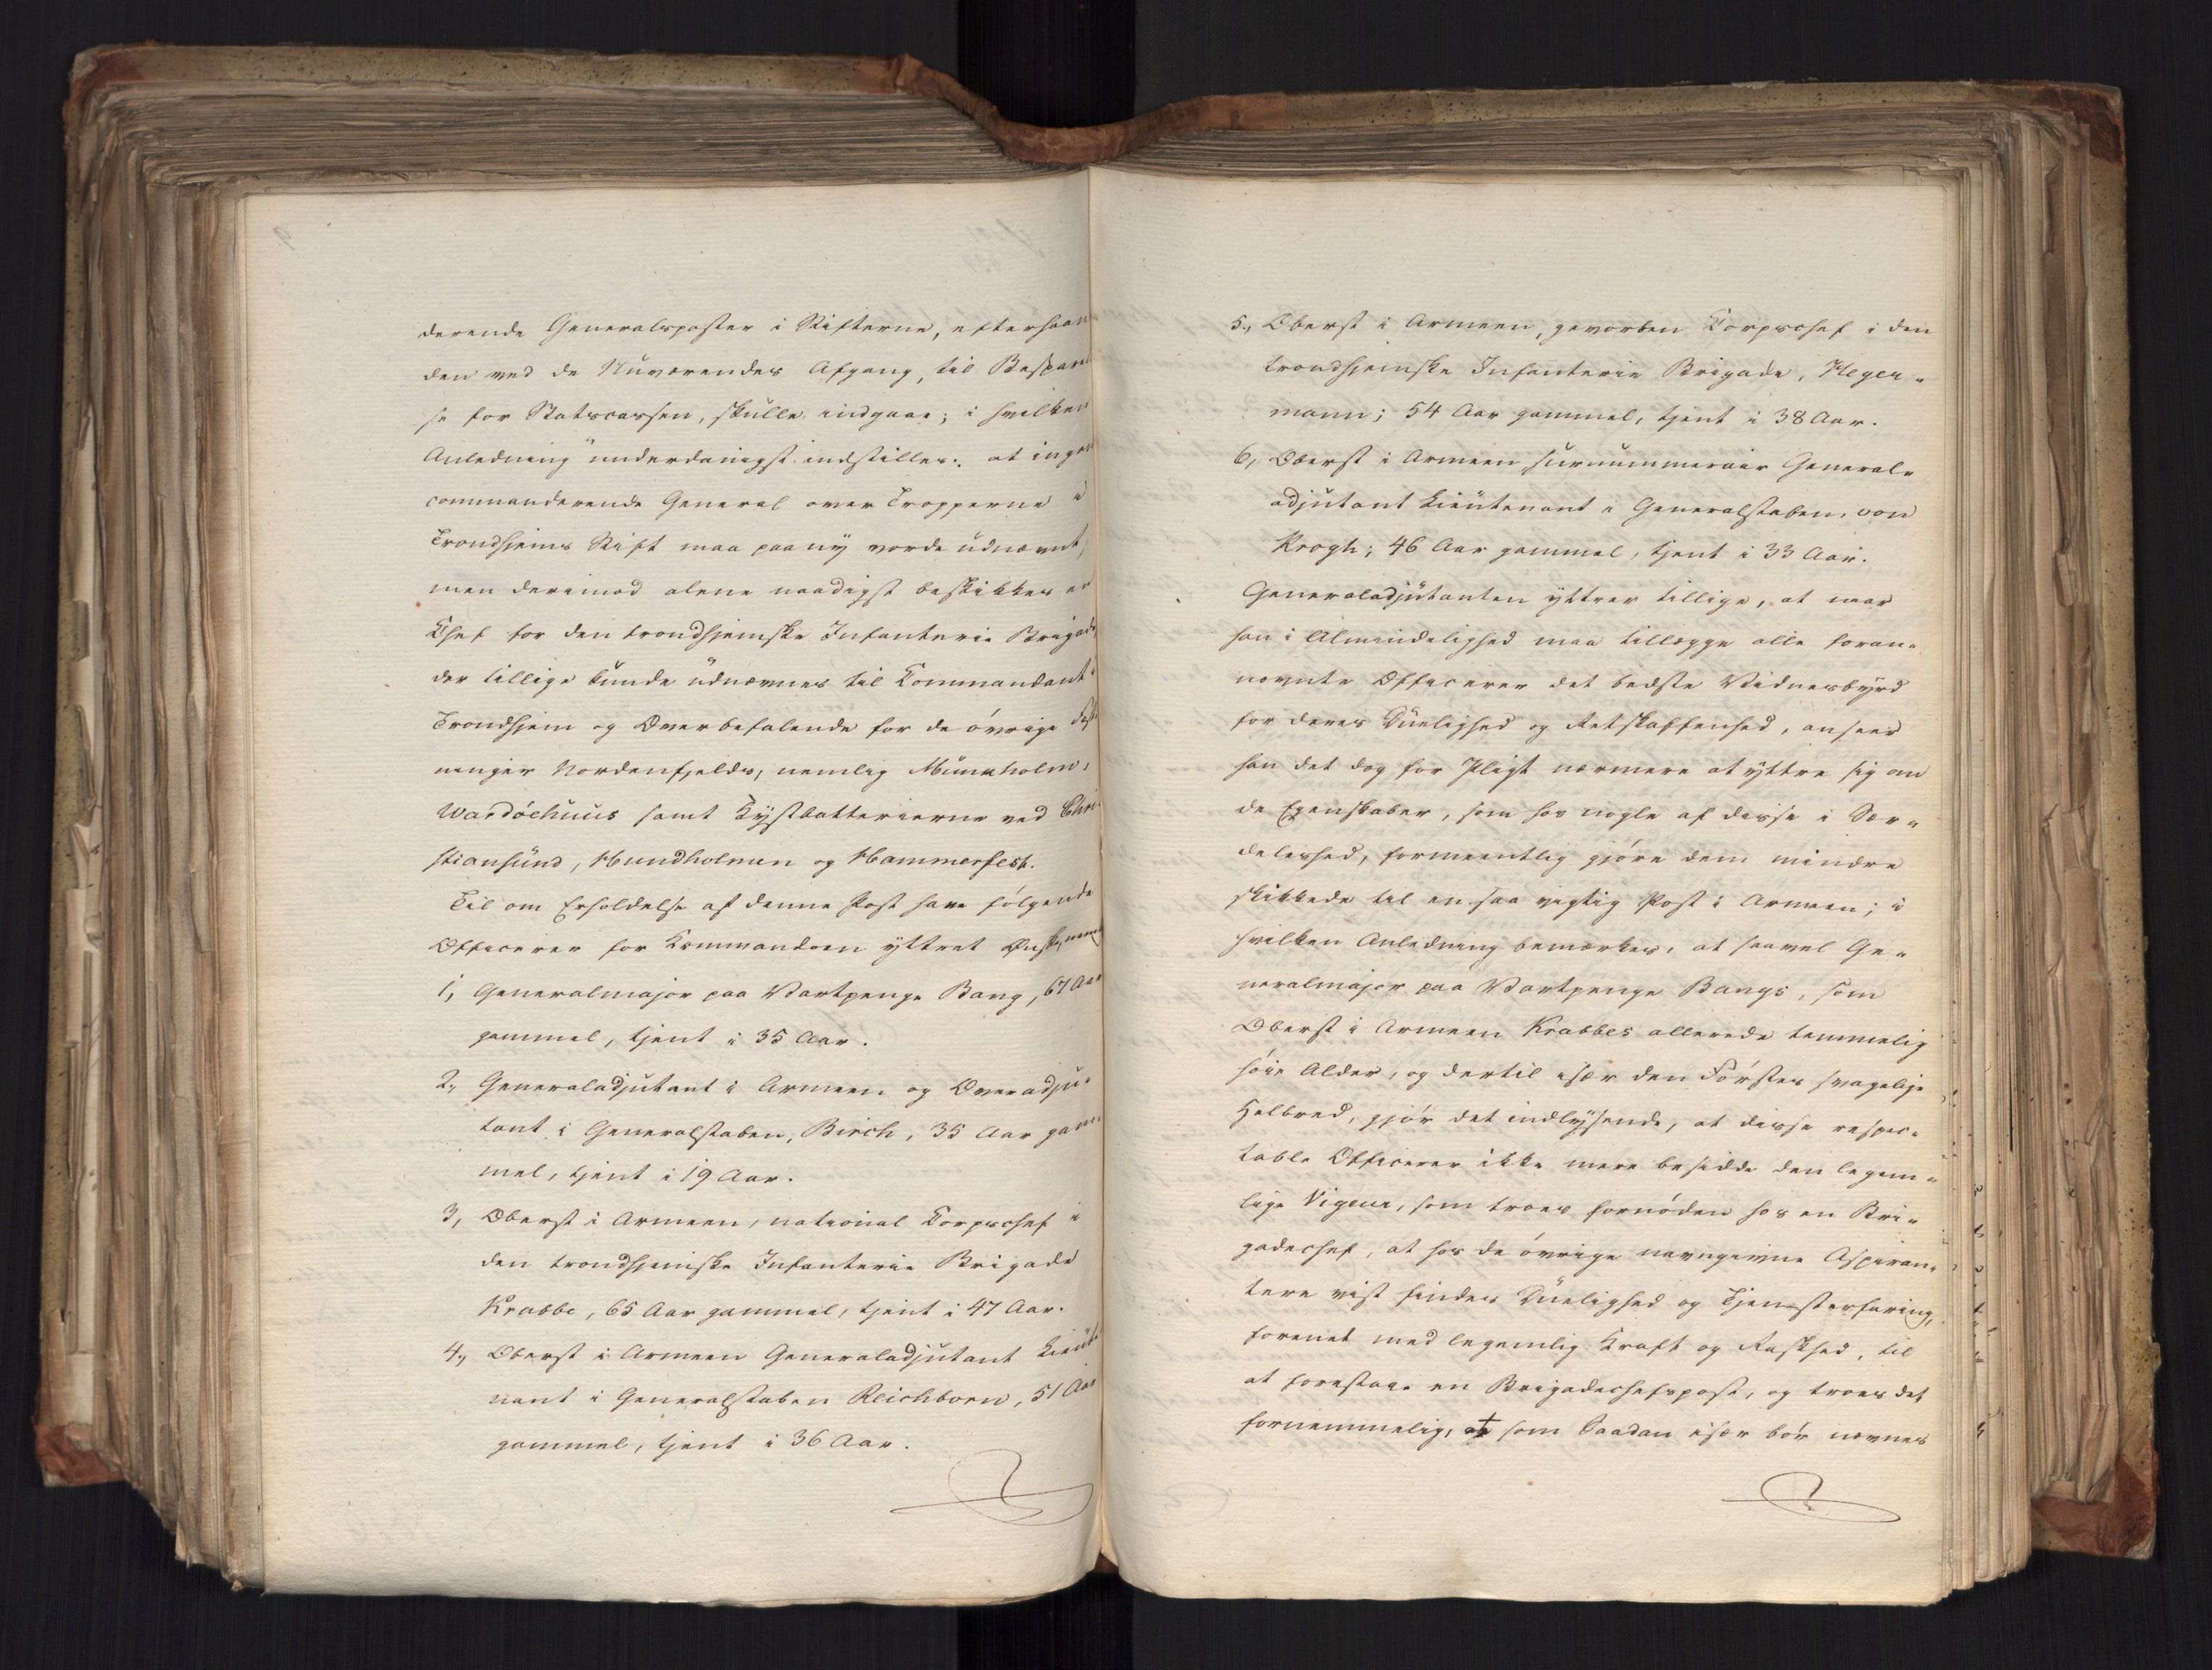 derende Generalsposter i Stifterne, efterhaan
den ved de Nuværendes Afgang, til Besparel
se for Statscassen, skulle indgaae; i hvilken
Anledning underdanigst indstilles: at ingen
commanderende General over Tropperne i
Trondhjems Stift maa paa ny vorde udnævnt,
men derimod alene naadigst beskikkes en
Chef for den trondhjemske Infanterie Brigade,
der tillige kunde udnævnes til Commandant i
Trondhjem og Overbefalende for de øvrige Fæst
ninger Nordenfjelds, nemlig Munkholm,
Wardöehuus samt Kystbatterierne ved Chri
stiansund, Hundholmen og Hammerfest.
Til om Erholdelse af denne Post have følgende
Officerer for Commandoen yttret Ønske, nemlig
1, Generalmajor paa Vartpenge Bang, 67 Aar
gammel, tjent i 35 Aar.
2., Generaladjutant i Armeen og Overadju-
tant i Generalstaben, Birch, 35 Aar gam-
mel, tjent i 19 Aar.
3, Oberst i Armeen, national Corpschef i
den trondhjemske Infanterie Brigade
Krabbe, 65 Aar gammel, tjent i 47 Aar.
4., Oberst i Armeen Generaladjutant Lieüt-
nant i Generalstaben Reichborn, 51 Aar
gammel, tjent i 36 Aar.
5., Oberst i Armeen, gevorben Corpschef i den
trondhjemske Infanterie Brigade, Heger-
mann; 54 Aar gammel, tjent i 38 Aar.
6, Oberst i Armeen surnummerair General-
adjutant Lieutenant i Generalstaben, von
Krogh; 46 Aar gammel, tjent i 33 Aar.
Generaladjutanten yttrer tillige, at naar
han i Almindelighed maa tillægge alle foran-
nævnte Officerer det bedste Vidnesbyrd
for deres Duelighed og Retskaffenhed, anseer
han det dog for Pligt nærmere at yttre sig om
de Egenskaber, som hos nogle af disse i Sær-
deleshed, formeentlig gjøre dem mindre
skikkede til en saa vigtig Post i Armeen; i
hvilken Anledning bemærkes, at saavel Ge-
neralmajor paa Vartpenge Bangs, som
Oberst i Armeen Krabbes allerede temmelig
høie Alder, og dertil især den Førstes svagelige
Helbred, gjør det indlysende, at disse respec-
table Officerer ikke mere besidde den legem-
lige Vigeur, som troes fornøden hos en Bri-
gadechef, at hos de øvrige navngivne Aspiran-
tere vist findes Duelighed og Tjenesterfaring,
forenet med legemlig Kraft og Raskhed, til
at forestaae en Brigadechefspost, og troes det
fornemmelig, at som Saadan især bør nævnes